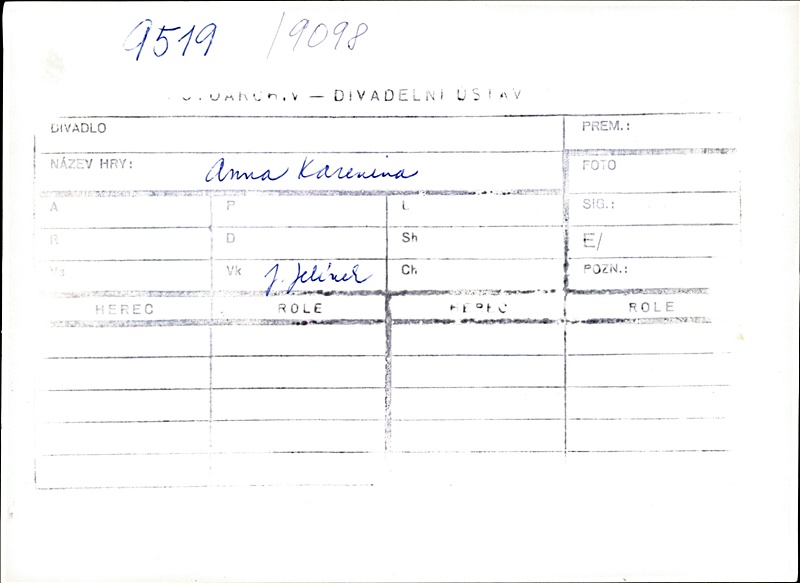 9519 /9098
FOTOARCHIV — DIVADELNÍ ÚSTAV
DIVADLO PREM.:
NÁZEV HRY: Anna Karenina FOTO
A P L SIG.:
R D Sh E/
Vk J. Jelínek Ch POZN.:
HEREC ROLE HEREC ROLE